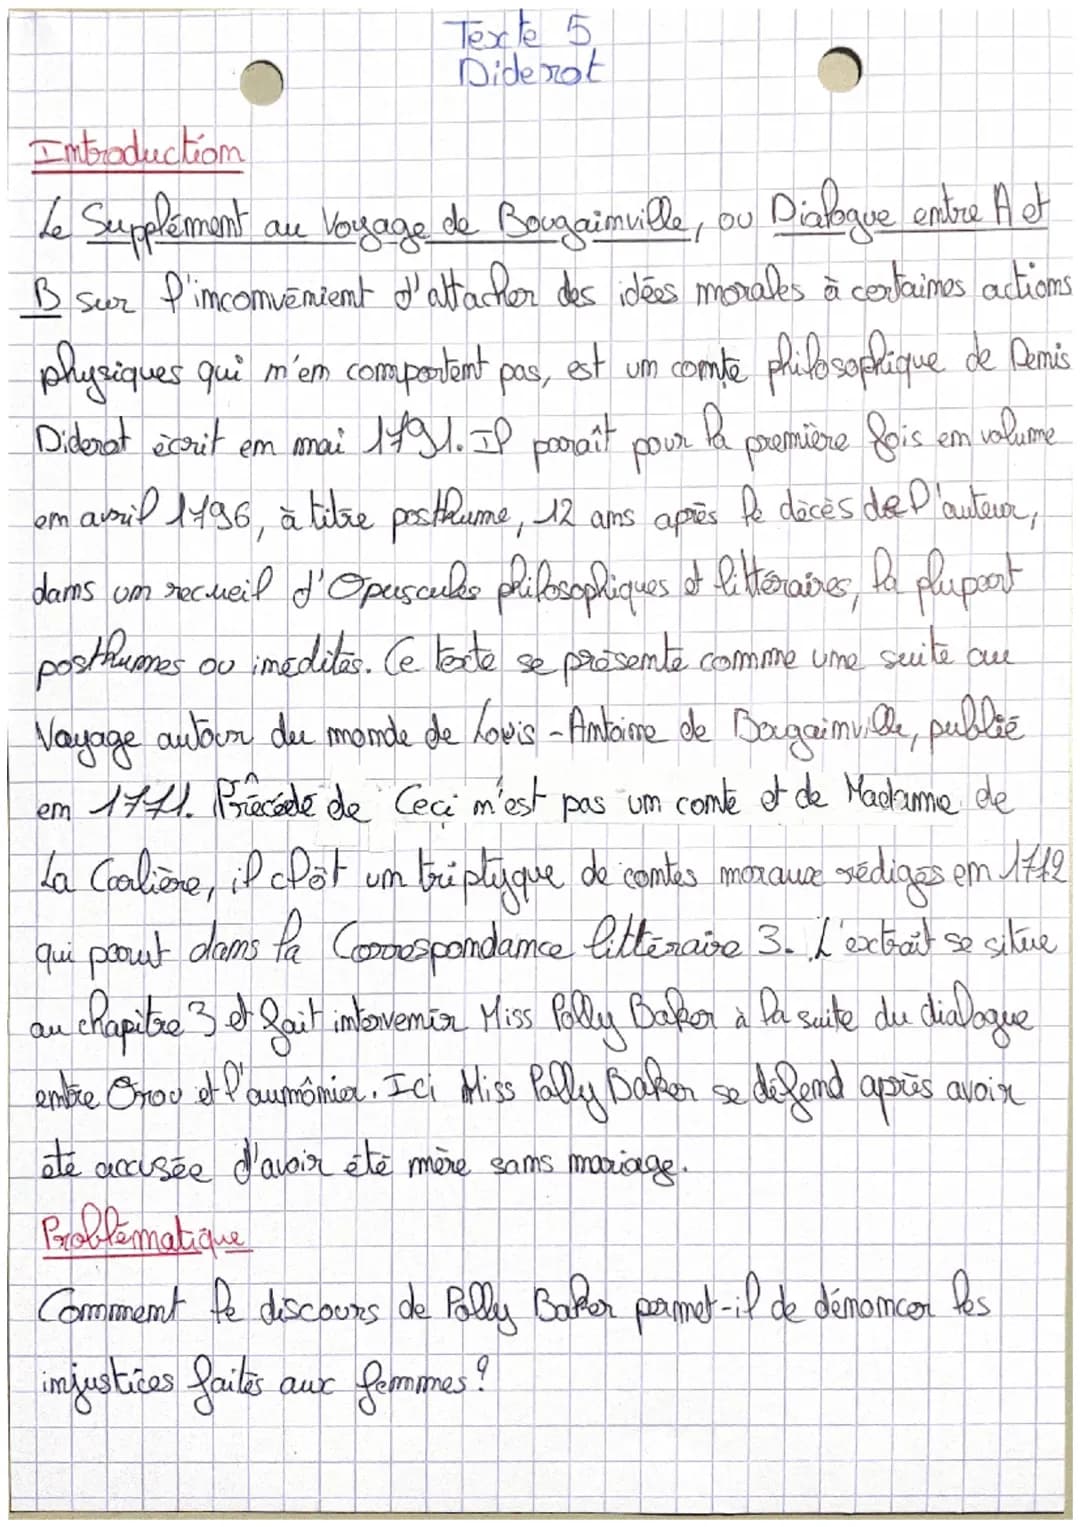 Texte 5
Diderot
Introduction
Le Supplément au Voyage de Bougainville, ou Dialogue entre A et
B sur l'inconvénient d'attacher des idées morales à certaines actions
physiques qui n'en comportent pas, est un conte philosophique de Denis
Diderot écrit en mai 1791. Il paraît pour la première fois en volume
en avril 1796, à titre posthume, 12 ans après le décès de l'auteur,
dans un recueil d'Opuscules philosophiques et littéraires, la plupart
posthumes ou inédites. Ce texte se présente comme une suite au
Voyage autour du monde de Louis-Antoine de Bougainville, publié
en 1771. Précédé de Ceci n'est pas un conte et de Madame de
La Carlière, il clôt un triptyque de contes moraux rédigés en 1772
qui parut dans la Correspondance littéraire 3. L'extrait se situe
au chapitre 3 et fait intervenir Miss Polly Baker à la suite du dialogue
entre Orou et l'aumônier. Ici Miss Polly Baker se défend après avoir
été accusée d'avoir été mère sans mariage.
Problématique
Comment le discours de Polly Baker permet-il de dénoncer les
injustices faites aux femmes ?